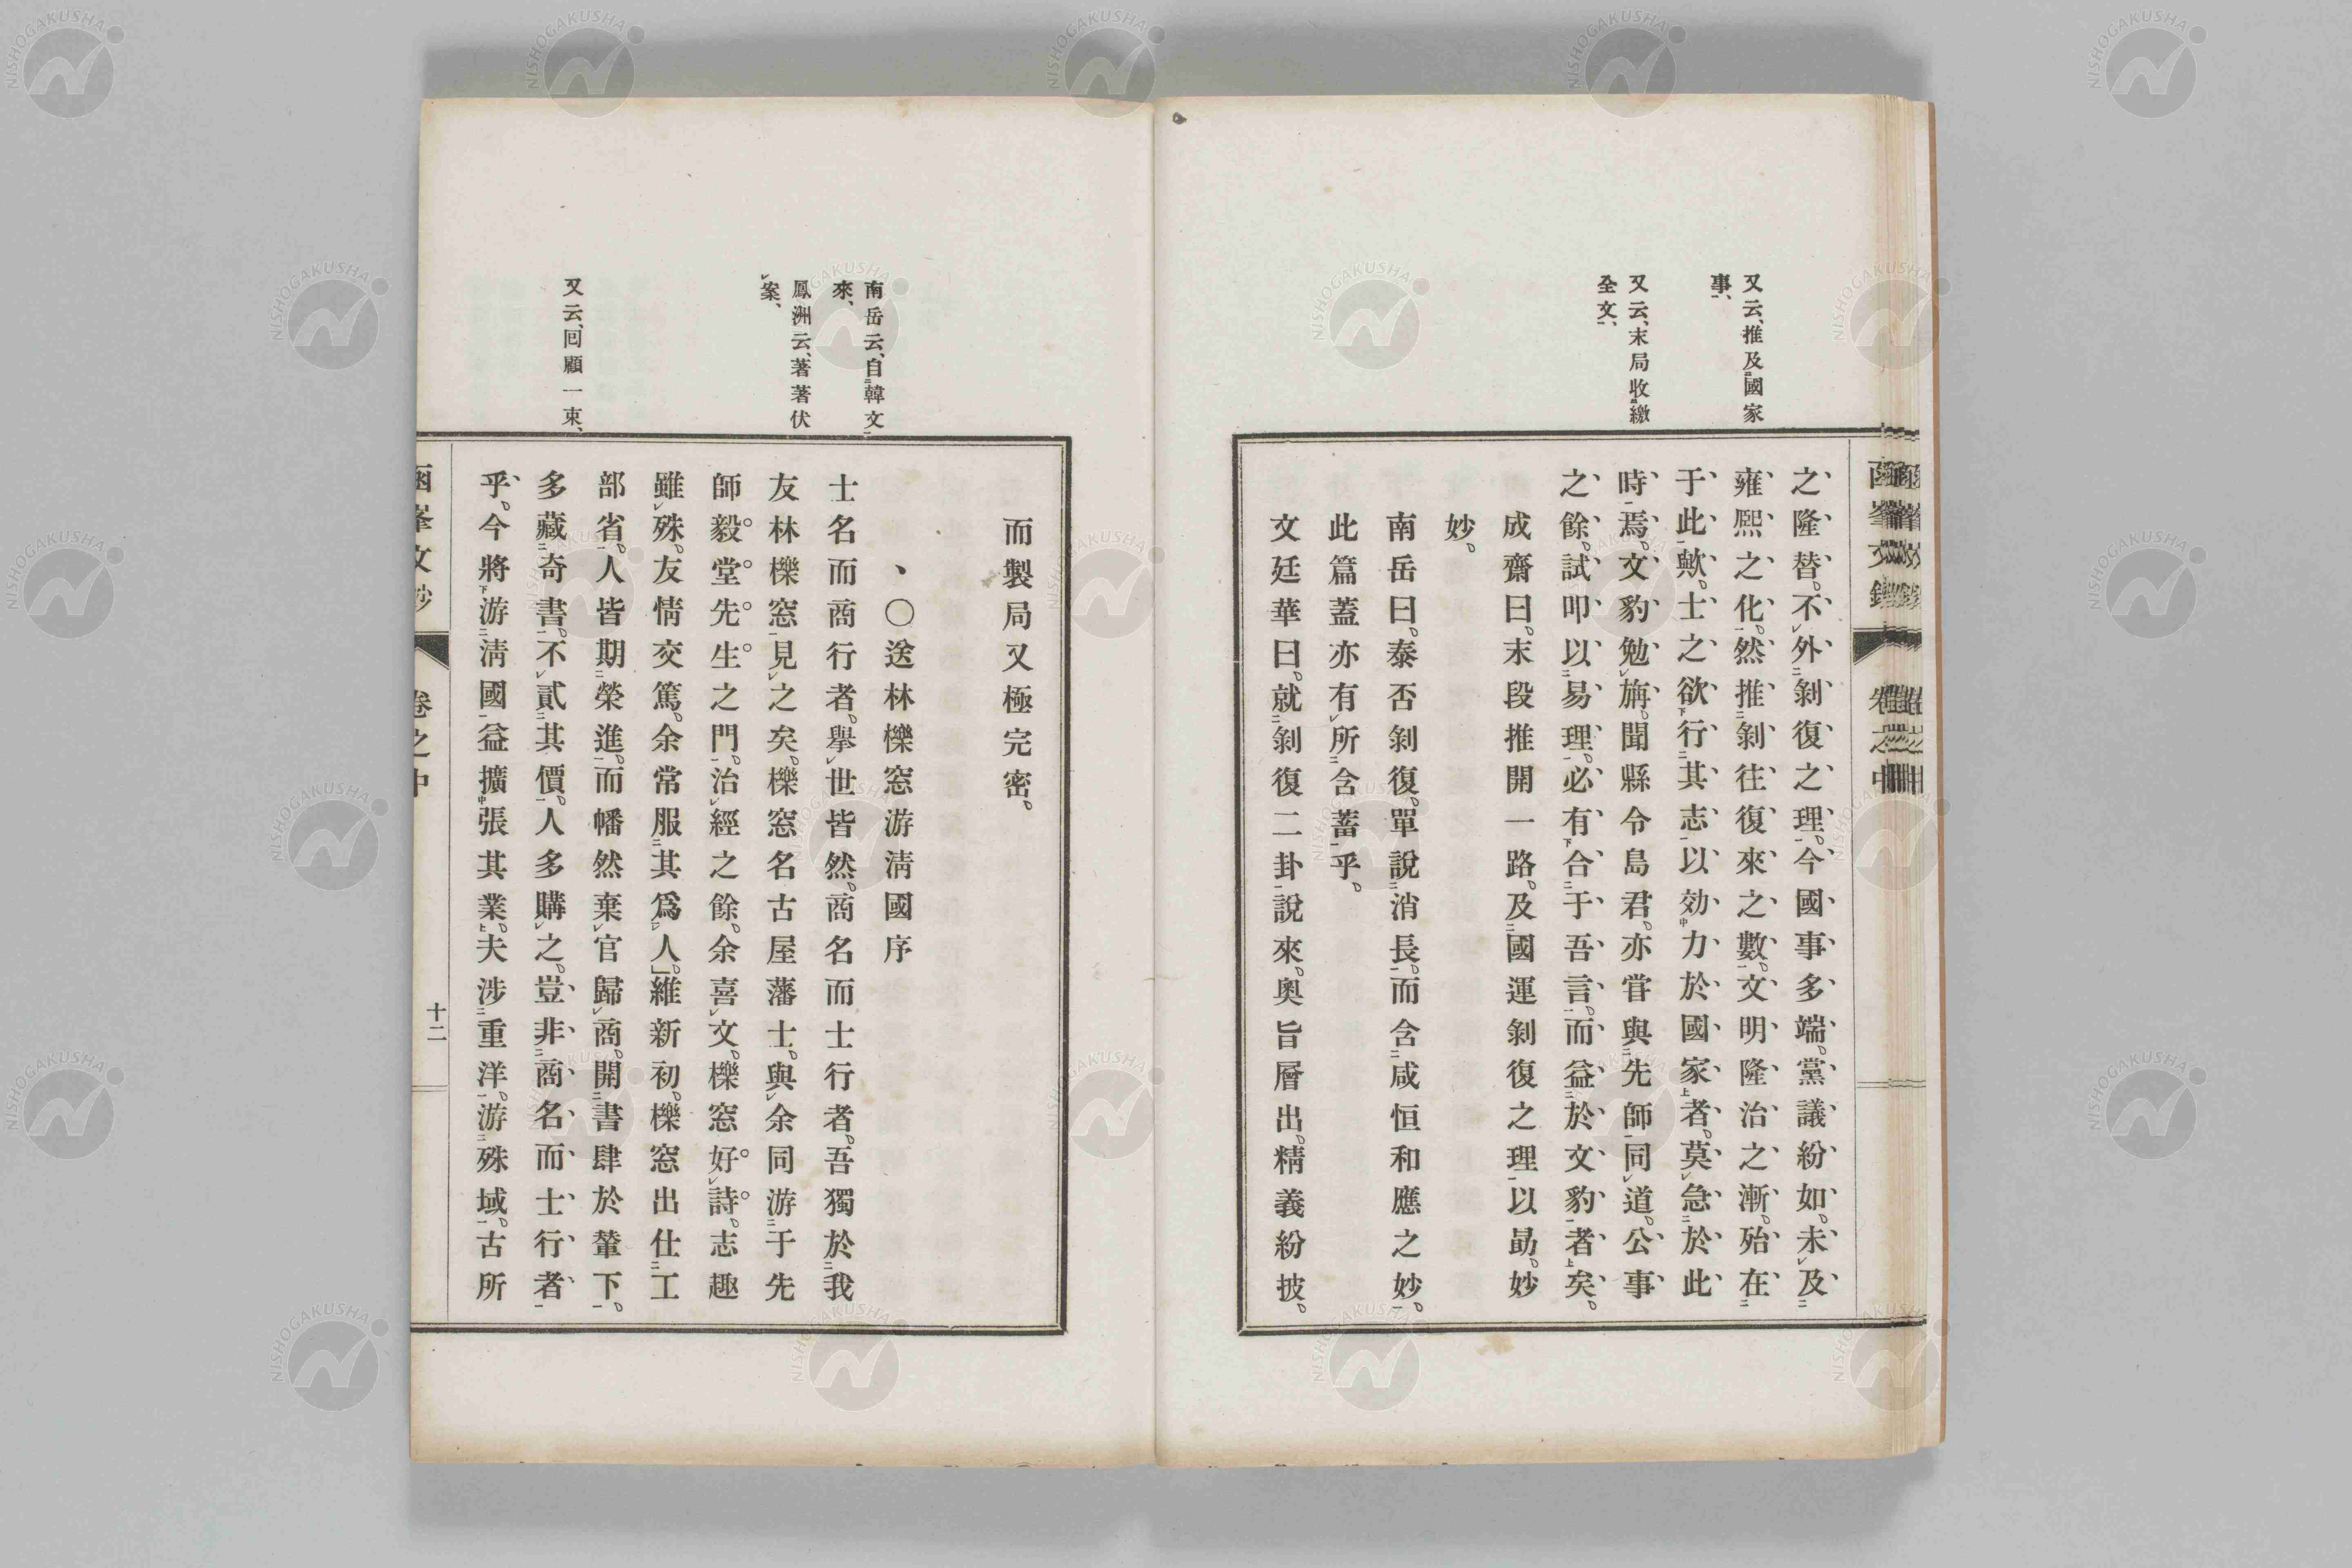 又云、推及國家
事、
又云、末局收繳
全文、
之隆替。不外剝復之理。今國事多端。黨議紛如。未及
雍熈之化。然推剝往復來之數。文明隆治之漸。殆在
于此歟。士之欲行其志以効力於國家者。莫急於此
時焉。文豹勉旃。聞縣令島君。亦甞與先師同道。公事
之餘。試叩以易理。必有合于吾言。而益於文豹者矣。
成齋曰。末段推開一路。及國運剝復之理以勗。妙
妙。
南岳曰。泰否剝復。單說消長。而含咸恒和應之妙。
此篇蓋亦有所含蓄乎。
文廷華曰。就剝復二卦說來。奥旨層出。精義紛披。
南岳云、自韓文
來、
鳳洲云、著著伏
案、
又云、回顧一束、
而製局又極完密。
、〇送林櫟窓游淸國序
士名而商行者。擧世皆然。商名而士行者。吾獨於我
友林櫟窓見之矣。櫟窓名古屋藩士。與余同游于先
師毅堂先生之門。治經之餘。余喜文。櫟窓好詩。志趣
雖殊。友情交篤。余常服其爲人。維新初。櫟窓出仕工
部省。人皆期榮進。而幡然棄官歸商。開書肆於輦下。
多藏奇書。不貳其價。人多購之。豈非商名而士行者
乎。今將游淸國益擴張其業。夫涉重洋。游殊域。古所
卷之中
十二